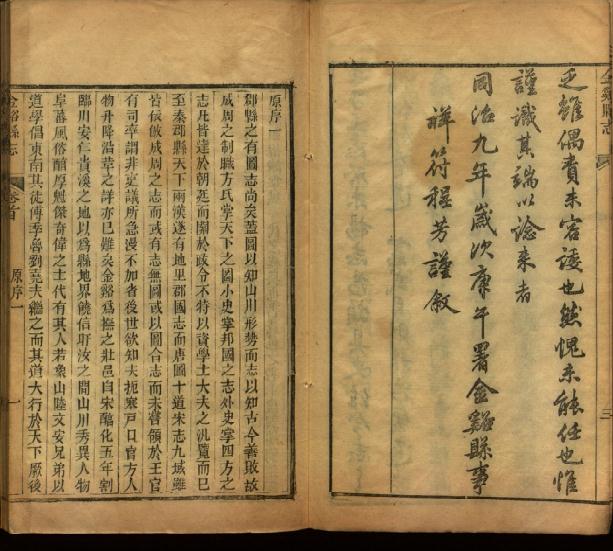 乏雖偶責未容諉也然愧未能任也惟
謹識其端以諗来者
同治九年歲次庚午署金谿縣事
祥符程芳謹敘
原序一
郡縣之有圖志尚矣蓋圖以知山川形勢而志以知古今善敗故
成周之制職方氏掌天下之圖小史掌邦國之志外史掌四方之
志凡皆達於朝廷而關於政令不特以資學士大夫之汎覽而已
至秦郡縣天下兩漢遂有地里郡國志而唐圖十道宋志九域雖
皆依倣成周之志而或有志無圖或以圖合志而未嘗領於王官
有司率謂非更議所急漫不加省後世欲知夫扼塞戶口官方人
物升降沿革之詳亦已難矣金谿爲撫之壯邑自宋淳化五年割
臨川安仁貴溪之地以爲縣地界饒信盱汝之間山川秀異人物
阜蕃風俗醇厚魁傑奇偉之士代有其人若象山陸文安兄弟以
道學倡東南其徒傅季魯劉堯夫繼之而其道大行於天下厥後
金谿縣志
卷首
原序一
一